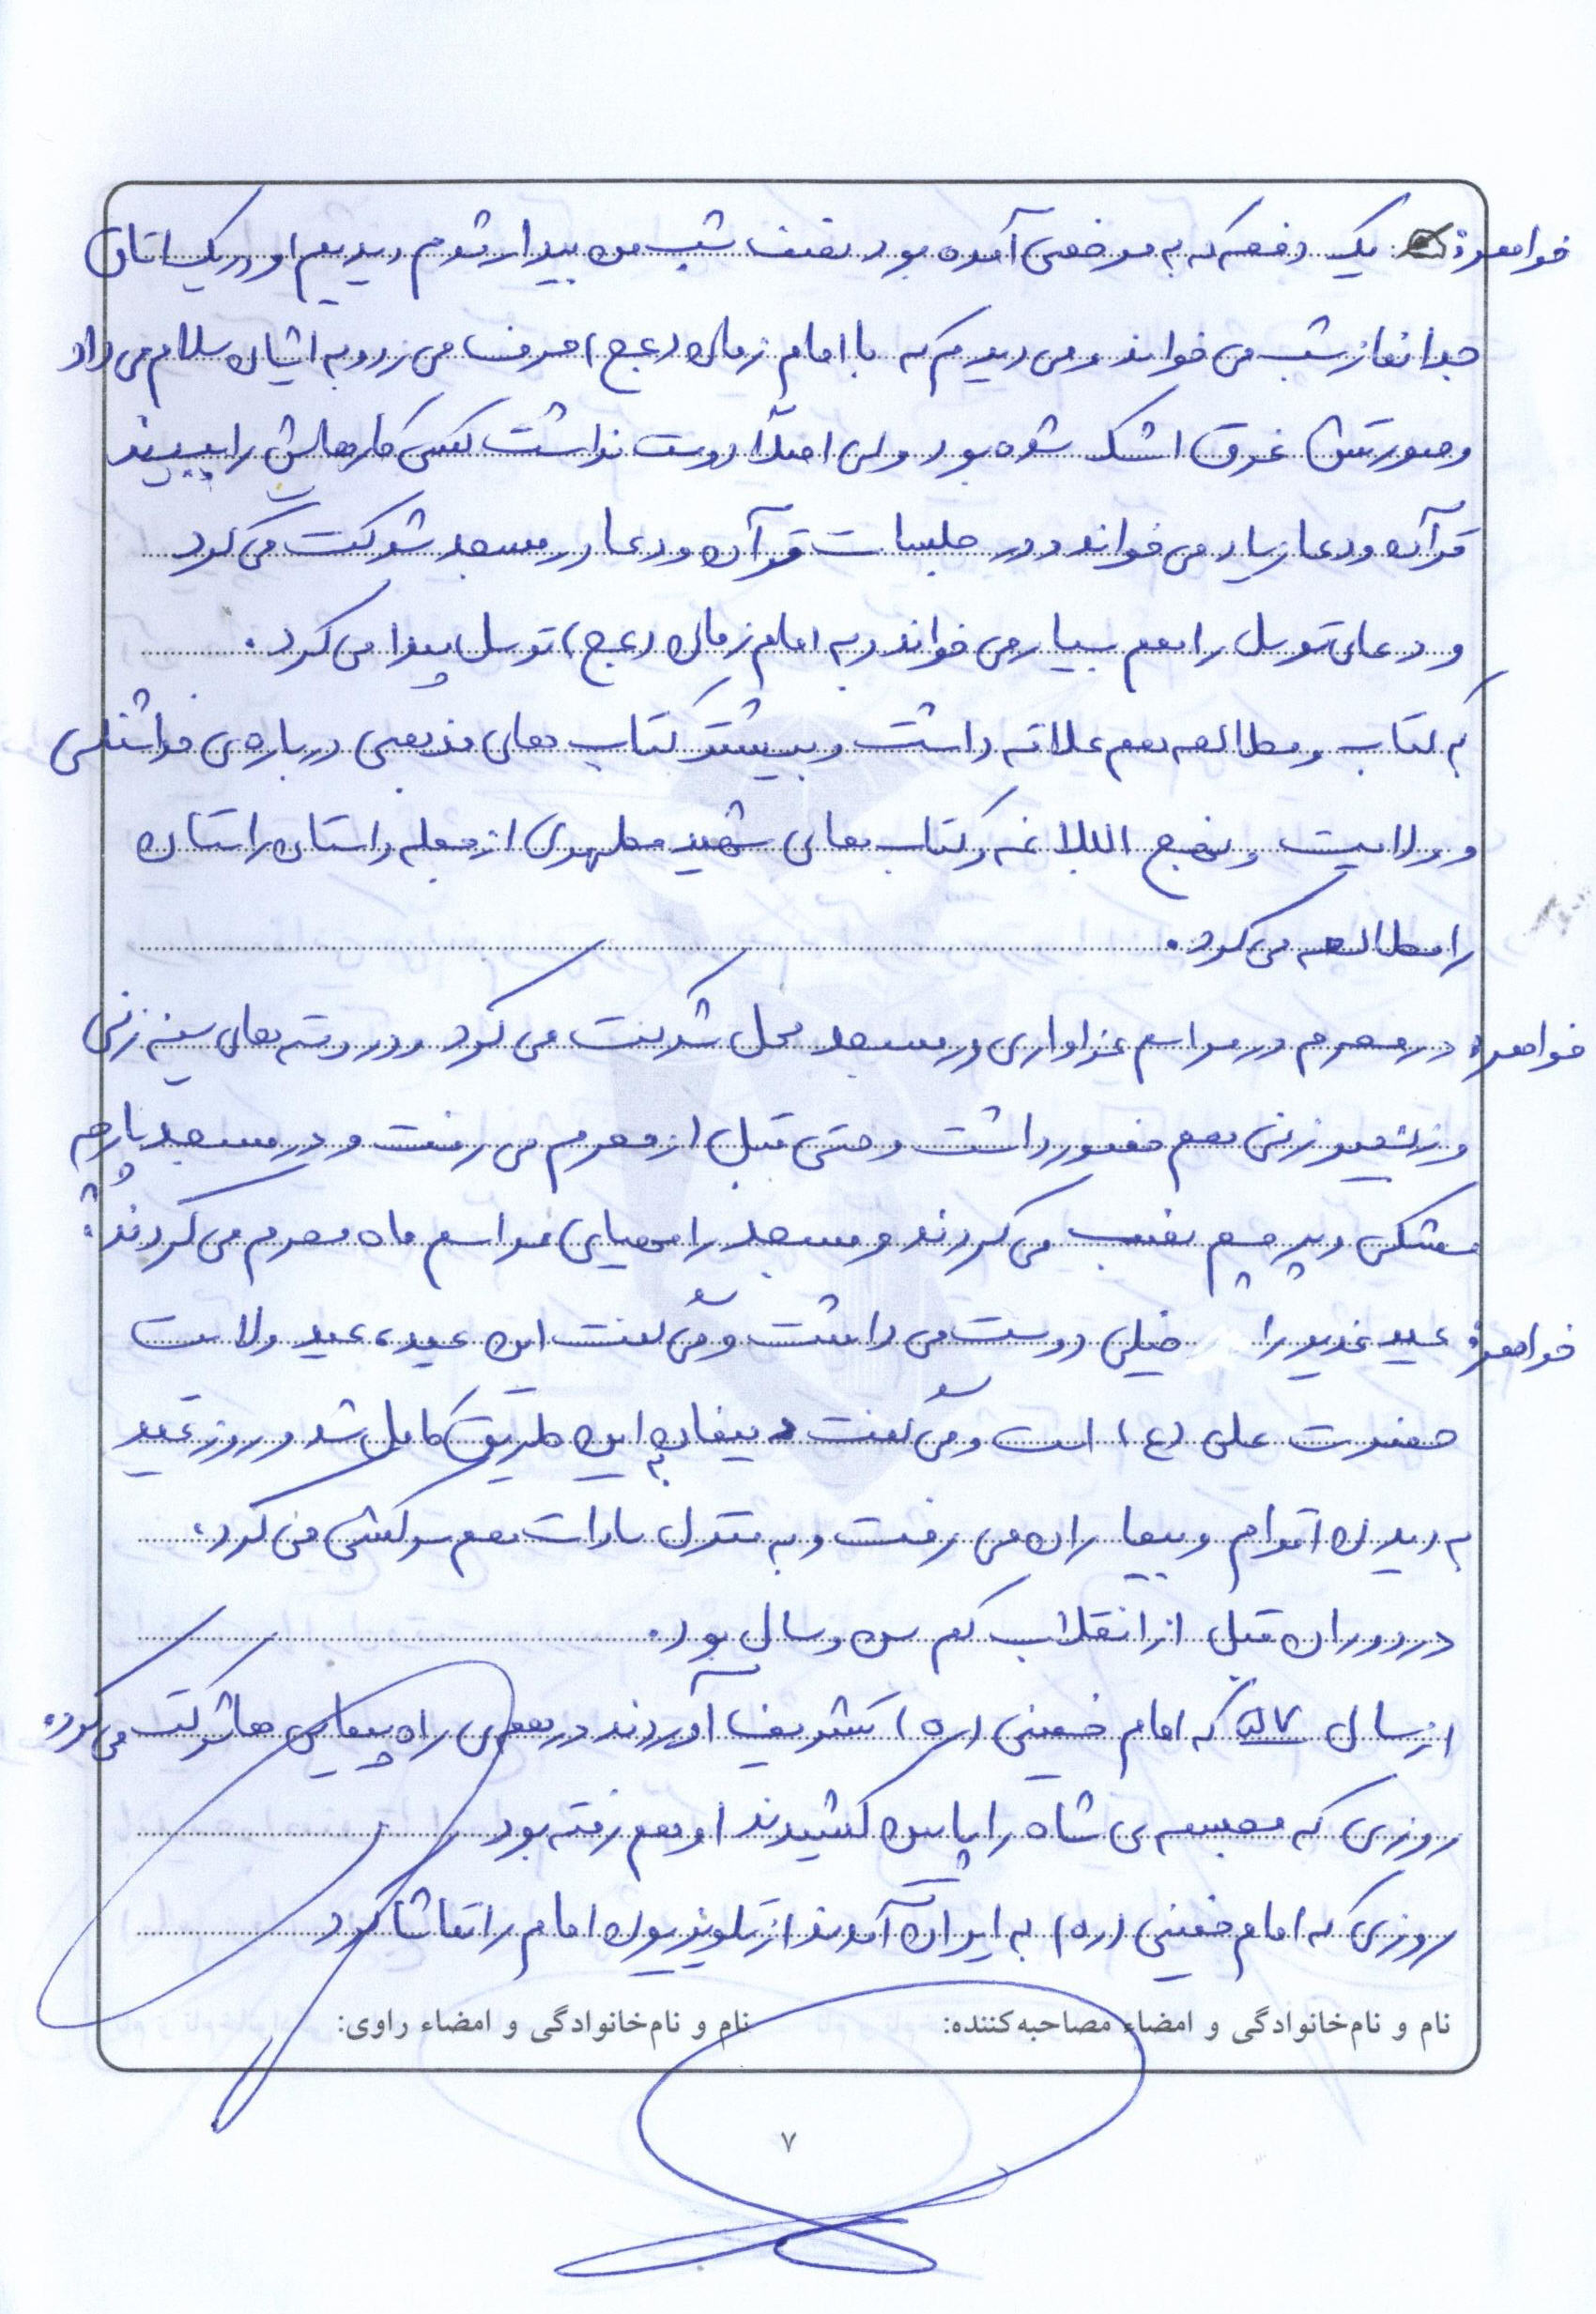 خواهر: یک دفعه که به مرخصی آمده بود نصف شب من بیدار شدم دیدیم او در یک اتاق
جدا نماز شب می خواند و می دیدم که با امام زمان (عج) حرف می زد و به ایشان سلام می داد
و صورتش غرق اشک شده بود ولی اصلاً دوست نداشت کسی کارهایش را ببیند
قرآن و دعا زیاد می خواند و در جلسات قرآن و دعا در مسجد شرکت می کرد
و دعای توسل را هم بسیار می خواند و به امام زمان (عج) توسل پیدا می کرد.
به کتاب و مطالعه هم علاقه داشت و بیشتر کتاب های مذهبی درباره ی
و ولایت و نهج البلاغه و کتاب های شهید مطهری از جمله داستان راستان
را مطالعه می کرد.
خواهر: در محرم در مراسم عزاداری در مسجد محل شرکت می کرد و در دسته های سینه زنی
و زنجیر زنی هم حضور داشت و حتی قبل از محرم می رفت و در مسجد پارچه
مشکی و پرچم نصب می کردند و مسجد را مهیای مراسم ماه محرم می کردند.
خواهر: عید غدیر را خیلی دوست می داشت و می گفت این عید، عید ولایت
حضرت علی (ع) است و می گفت پیمان به این طریق کامل شد و روز عید
به دیدن اقوام و بیماران می رفت و به منزل سادات هم سرکشی می کرد.
در دوران قبل از انقلاب کم سن و سال بود.
از سال ۵۷ که امام خمینی (ره) تشریف آوردند در همه ی راه پیمایی ها شرکت می کرد.
روزی که مجسمه ی شاه را پایین کشیدند او هم رفته بود
روزی که امام خمینی (ره) به ایران آمدند از تلویزیون امام را تماشا کرد
نام و نام‌خانوادگی و امضاء مصاحبه‌کننده: نام و نام‌خانوادگی و امضاء راوی:
۷